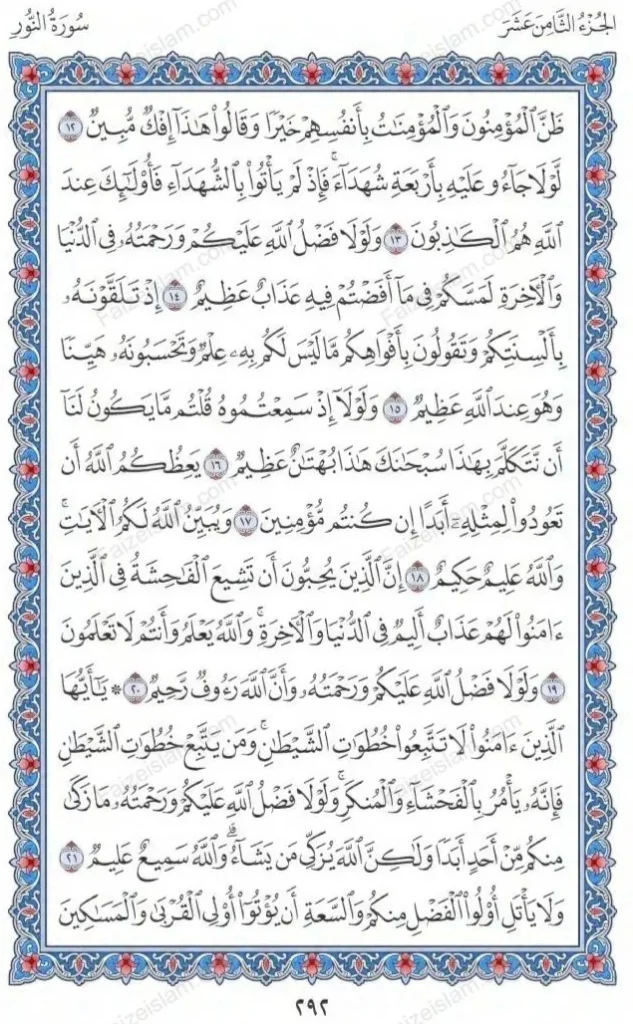 الجُزْءُ الثَّامِنَ عَشَرَ
سُورَةُ النُّورِ
ظَنَّ ٱلْمُؤْمِنُونَ وَٱلْمُؤْمِنَٰتُ بِأَنفُسِهِمْ خَيْرًا وَقَالُوا۟ هَٰذَآ إِفْكٌ مُّبِينٌ ١٢
لَّوْلَا جَآءُو عَلَيْهِ بِأَرْبَعَةِ شُهَدَآءَ ۚ فَإِذْ لَمْ يَأْتُوا۟ بِٱلشُّهَدَآءِ فَأُو۟لَٰٓئِكَ عِندَ
ٱللَّهِ هُمُ ٱلْكَٰذِبُونَ ١٣ وَلَوْلَا فَضْلُ ٱللَّهِ عَلَيْكُمْ وَرَحْمَتُهُۥ فِى ٱلدُّنْيَا
وَٱلْءَاخِرَةِ لَمَسَّكُمْ فِى مَآ أَفَضْتُمْ فِيهِ عَذَابٌ عَظِيمٌ ١٤ إِذْ تَلَقَّوْنَهُۥ
بِأَلْسِنَتِكُمْ وَتَقُولُونَ بِأَفْوَاهِكُم مَّا لَيْسَ لَكُم بِهِۦ عِلْمٌ وَتَحْسَبُونَهُۥ هَيِّنًا
وَهُوَ عِندَ ٱللَّهِ عَظِيمٌ ١٥ وَلَوْلَآ إِذْ سَمِعْتُمُوهُ قُلْتُم مَّا يَكُونُ لَنَآ
أَن نَّتَكَلَّمَ بِهَٰذَا سُبْحَٰنَكَ هَٰذَا بُهْتَٰنٌ عَظِيمٌ ١٦ يَعِظُكُمُ ٱللَّهُ أَن
تَعُودُوا۟ لِمِثْلِهِۦٓ أَبَدًا إِن كُنتُم مُّؤْمِنِينَ ١٧ وَيُبَيِّنُ ٱللَّهُ لَكُمُ ٱلْءَايَٰتِ ۚ
وَٱللَّهُ عَلِيمٌ حَكِيمٌ ١٨ إِنَّ ٱلَّذِينَ يُحِبُّونَ أَن تَشِيعَ ٱلْفَٰحِشَةُ فِى ٱلَّذِينَ
ءَامَنُوا۟ لَهُمْ عَذَابٌ أَلِيمٌ فِى ٱلدُّنْيَا وَٱلْءَاخِرَةِ ۚ وَٱللَّهُ يَعْلَمُ وَأَنتُمْ لَا تَعْلَمُونَ
١٩ وَلَوْلَا فَضْلُ ٱللَّهِ عَلَيْكُمْ وَرَحْمَتُهُۥ وَأَنَّ ٱللَّهَ رَءُوفٌ رَّحِيمٌ ٢٠ ۞ يَٰٓأَيُّهَا
ٱلَّذِينَ ءَامَنُوا۟ لَا تَتَّبِعُوا۟ خُطُوَٰتِ ٱلشَّيْطَٰنِ ۚ وَمَن يَتَّبِعْ خُطُوَٰتِ ٱلشَّيْطَٰنِ
فَإِنَّهُۥ يَأْمُرُ بِٱلْفَحْشَآءِ وَٱلْمُنكَرِ ۚ وَلَوْلَا فَضْلُ ٱللَّهِ عَلَيْكُمْ وَرَحْمَتُهُۥ مَا زَكَىٰ
مِنكُم مِّنْ أَحَدٍ أَبَدًا وَلَٰكِنَّ ٱللَّهَ يُزَكِّى مَن يَشَآءُ ۗ وَٱللَّهُ سَمِيعٌ عَلِيمٌ ٢١
وَلَا يَأْتَلِ أُو۟لُوا۟ ٱلْفَضْلِ مِنكُمْ وَٱلسَّعَةِ أَن يُؤْتُوٓا۟ أُو۟لِى ٱلْقُرْبَىٰ وَٱلْمَسَٰكِينَ
٢٩٢
Faizeislam.com